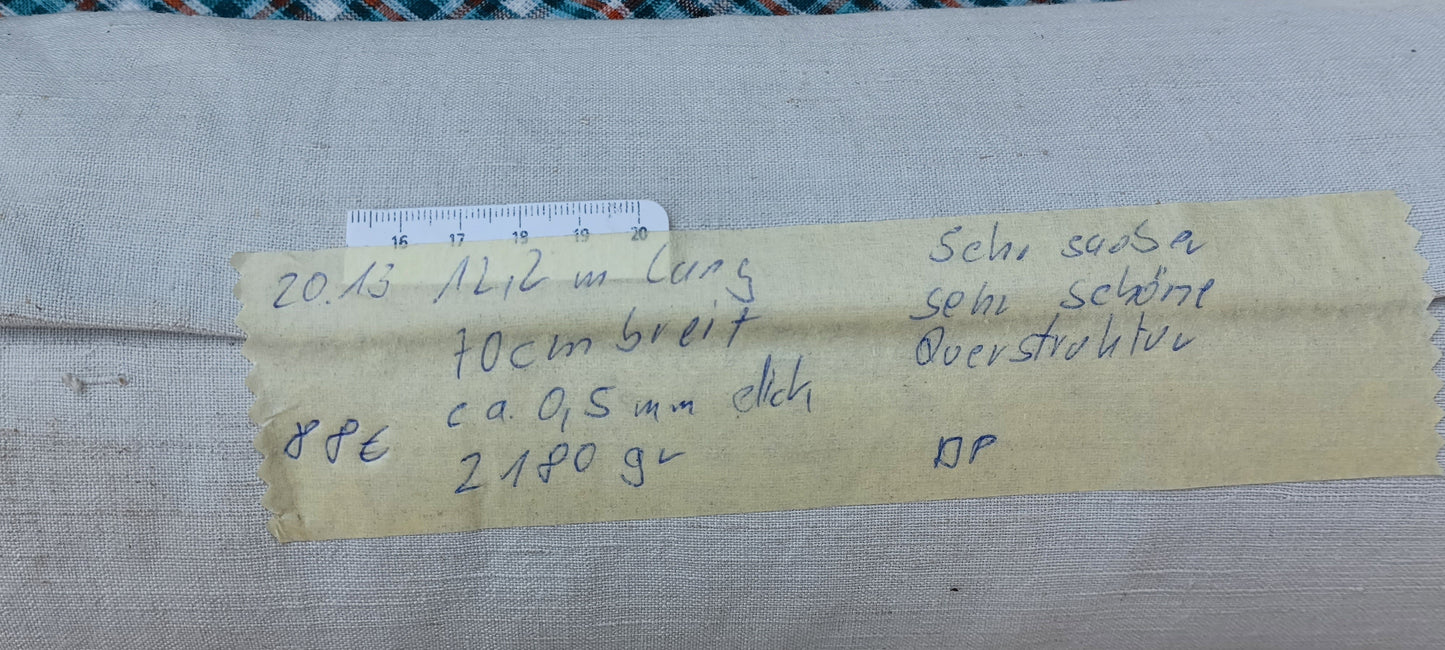 16 17 18 19 20
20.13 12,2 m lang
70cm breit
ca. 0,5 mm dick
88€ 2180 gr
Sehr sauber
sehr schöne
Querstruktur
DP